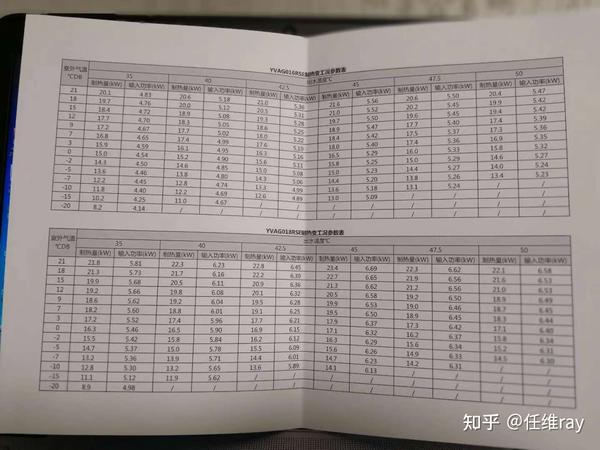 YVAG016RSE制热变工况参数表
室外气温 ℃DB 出水温度℃
35 40 42.5 45 47.5 50
制热量(kW) 输入功率(kW) 制热量(kW) 输入功率(kW) 制热量(kW) 输入功率(kW) 制热量(kW) 输入功率(kW) 制热量(kW) 输入功率(kW) 制热量(kW) 输入功率(kW)
21 20.1 4.83 20.6 5.18 21.0 5.36 21.6 5.56 20.6 5.50 20.4 5.47
18 19.7 4.76 20.0 5.12 20.5 5.31 21.0 5.52 20.2 5.45 19.9 5.42
15 18.4 4.72 18.9 5.08 19.3 5.28 19.7 5.50 19.6 5.45 19.4 5.42
12 17.7 4.70 18.3 5.05 18.6 5.25 18.9 5.47 17.7 5.40 17.4 5.39
9 17.2 4.67 17.7 5.02 18.0 5.22 18.4 5.42 17.5 5.37 17.3 5.36
7 16.8 4.65 17.4 4.99 17.6 5.19 18.0 5.40 17.4 5.36 16.9 5.35
3 15.9 4.59 16.1 4.95 16.3 5.16 16.5 5.29 16.0 5.33 15.8 5.32
0 15.0 4.54 15.2 4.90 15.6 5.11 15.8 5.25 15.0 5.29 14.6 5.27
-2 14.3 4.50 14.6 4.85 15.0 5.08 15.3 5.23 14.4 5.27 14.0 5.24
-5 13.6 4.46 13.8 4.80 14.3 5.06 14.4 5.20 13.8 5.26 13.4 5.23
-7 12.2 4.45 12.8 4.74 13.3 4.99 13.6 5.18 13.1 5.24 / /
-10 11.8 4.40 12.2 4.69 12.6 4.89 13.0 5.09 / / / /
-15 10.2 4.25 11.0 4.67 / / / / / / / /
-20 8.2 4.14 / / / / / / / / / /
YVAG018RSE制热变工况参数表
室外气温 ℃DB 出水温度℃
35 40 42.5 45 47.5 50
制热量(kW) 输入功率(kW) 制热量(kW) 输入功率(kW) 制热量(kW) 输入功率(kW) 制热量(kW) 输入功率(kW) 制热量(kW) 输入功率(kW) 制热量(kW) 输入功率(kW)
21 21.8 5.81 22.3 6.23 22.8 6.45 23.4 6.69 22.3 6.62 22.1 6.58
18 21.3 5.73 21.7 6.16 22.2 6.39 22.7 6.65 21.9 6.56 21.6 6.53
15 19.9 5.68 20.5 6.11 20.9 6.36 21.3 6.62 21.2 6.56 21.0 6.53
12 19.2 5.66 19.8 6.08 20.1 6.32 20.5 6.58 19.2 6.50 18.9 6.49
9 18.6 5.62 19.2 6.04 19.5 6.28 19.9 6.53 19.0 6.46 18.7 6.45
7 18.2 5.60 18.8 6.01 19.1 6.25 19.5 6.50 18.9 6.45 18.3 6.44
3 17.2 5.52 17.4 5.96 17.7 6.21 17.9 6.37 17.1 6.40
0 16.3 5.46 16.5 5.90 16.9 6.15 17.1 6.32 16.2 6.37 15.8 6.34
-2 15.5 5.42 15.8 5.84 16.2 6.12 15.6 6.34 15.2 6.31
-5 14.7 5.37 15.0 5.78 15.5 6.09 15.6 6.26 14.9 6.33 14.5 6.30
-7 13.2 5.36 13.9 5.71 14.4 6.01 14.7 6.23 14.2 6.31 / /
-10 12.8 5.30 13.2 5.65 13.6 5.89 14.1 6.13 / / / /
-15 11.1 5.12 11.9 5.62 / / / / / / / /
-20 8.9 4.98 / / / / / / / / / /
知乎 @任维ray